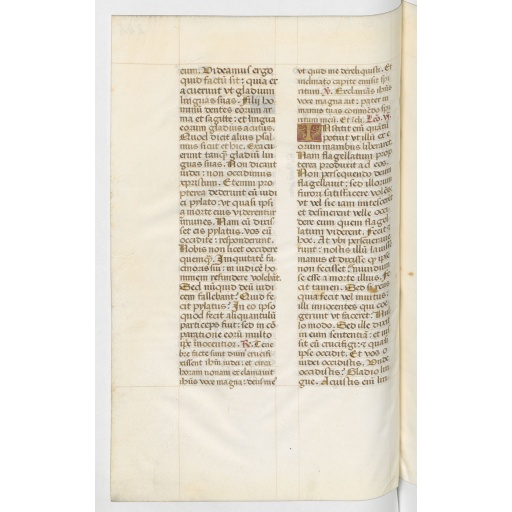 eum. Videamus ergo
quid factū sit: quia ex
acuerunt vt gladium
linguas suas. Filij ho
minū dentes eorum ar
ma et sagitte: et lingua
eorum gladius acutus.
Quod dicit alius psal
mus sicut et hic. Exacu
erunt tanq̄ gladiū lin
guas suas. Non dicant
iudei: non occidimus
xpristum. Etenim pro
pterea dederunt eū iudi
ci pylato: vt quasi ipsi
a morte eius viderentur
īmunes. Nam cū dixis
set eis pylatus. vos eū
occidite: responderunt.
Nobis non licet occidere
quemq̄. Iniquitatē fa
cinoris sui: in iudicē ho
minem refundere volebāt.
Sed nūquid deū iudi
cem fallebant? Quid fe
cit pylatus? In eo ipso
quod fecit aliquantulū
particeps fuit: sed in cō
paratione eorū multo
ipse innocentior. R. Tene
bre facte sunt dum crucifi
xissent ihūm iudei: et circa
horam nonam exclamauit
ihūs voce magna: deus me
vt quid me dereliquisti. Et
inclinato capite emisit spi
ritum. V. Exclamās ihūs
voce magna ait: pater in
manus tuas commēdo spi
ritum meū. Et incli. Leo. vi.
Institit eni quātū
potuit vt illū ex e
orum manibus liberaret.
Nam flagellatum pro
xerat producit ad eos.
Non persequendo deum
flagellauit: sed illorum
furori satisfacere volēs:
vt vel sic iam mitescerēt
et desinerent velle occi
dere cum quem flagel
latum viderent. Fecit et
hoc. At vbi perseuerauē
runt: nostis illū lauisse
manus et dixisse q̄ ipse
non fecisset: mundum
se esse a morte illius. Fe
cit tamen. Sed si reus
quia fecit vel inuitus:
illi innocentes qui coe
gerunt vt faceret? Nul
lo modo. Sed ille dixit
in eum sententiā: et ius
sit eū crucifigi: et quasi
ipse occidit. Et vos o
iudei occidistis. Unde
occidistis? Gladio lin
gue. Acuistis eni lin